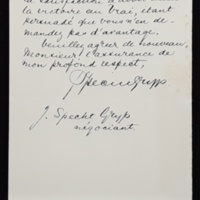 la satisfaction d'avoir
la victoire au vrai, étant
persuadé que vous n'en de-
mandez pas d'avantage.
Veuillez agréer de nouveau,
Monsieur l'assurance de
mon profond respect,
J Specht Grijp
J. Specht Grijp
négociant.